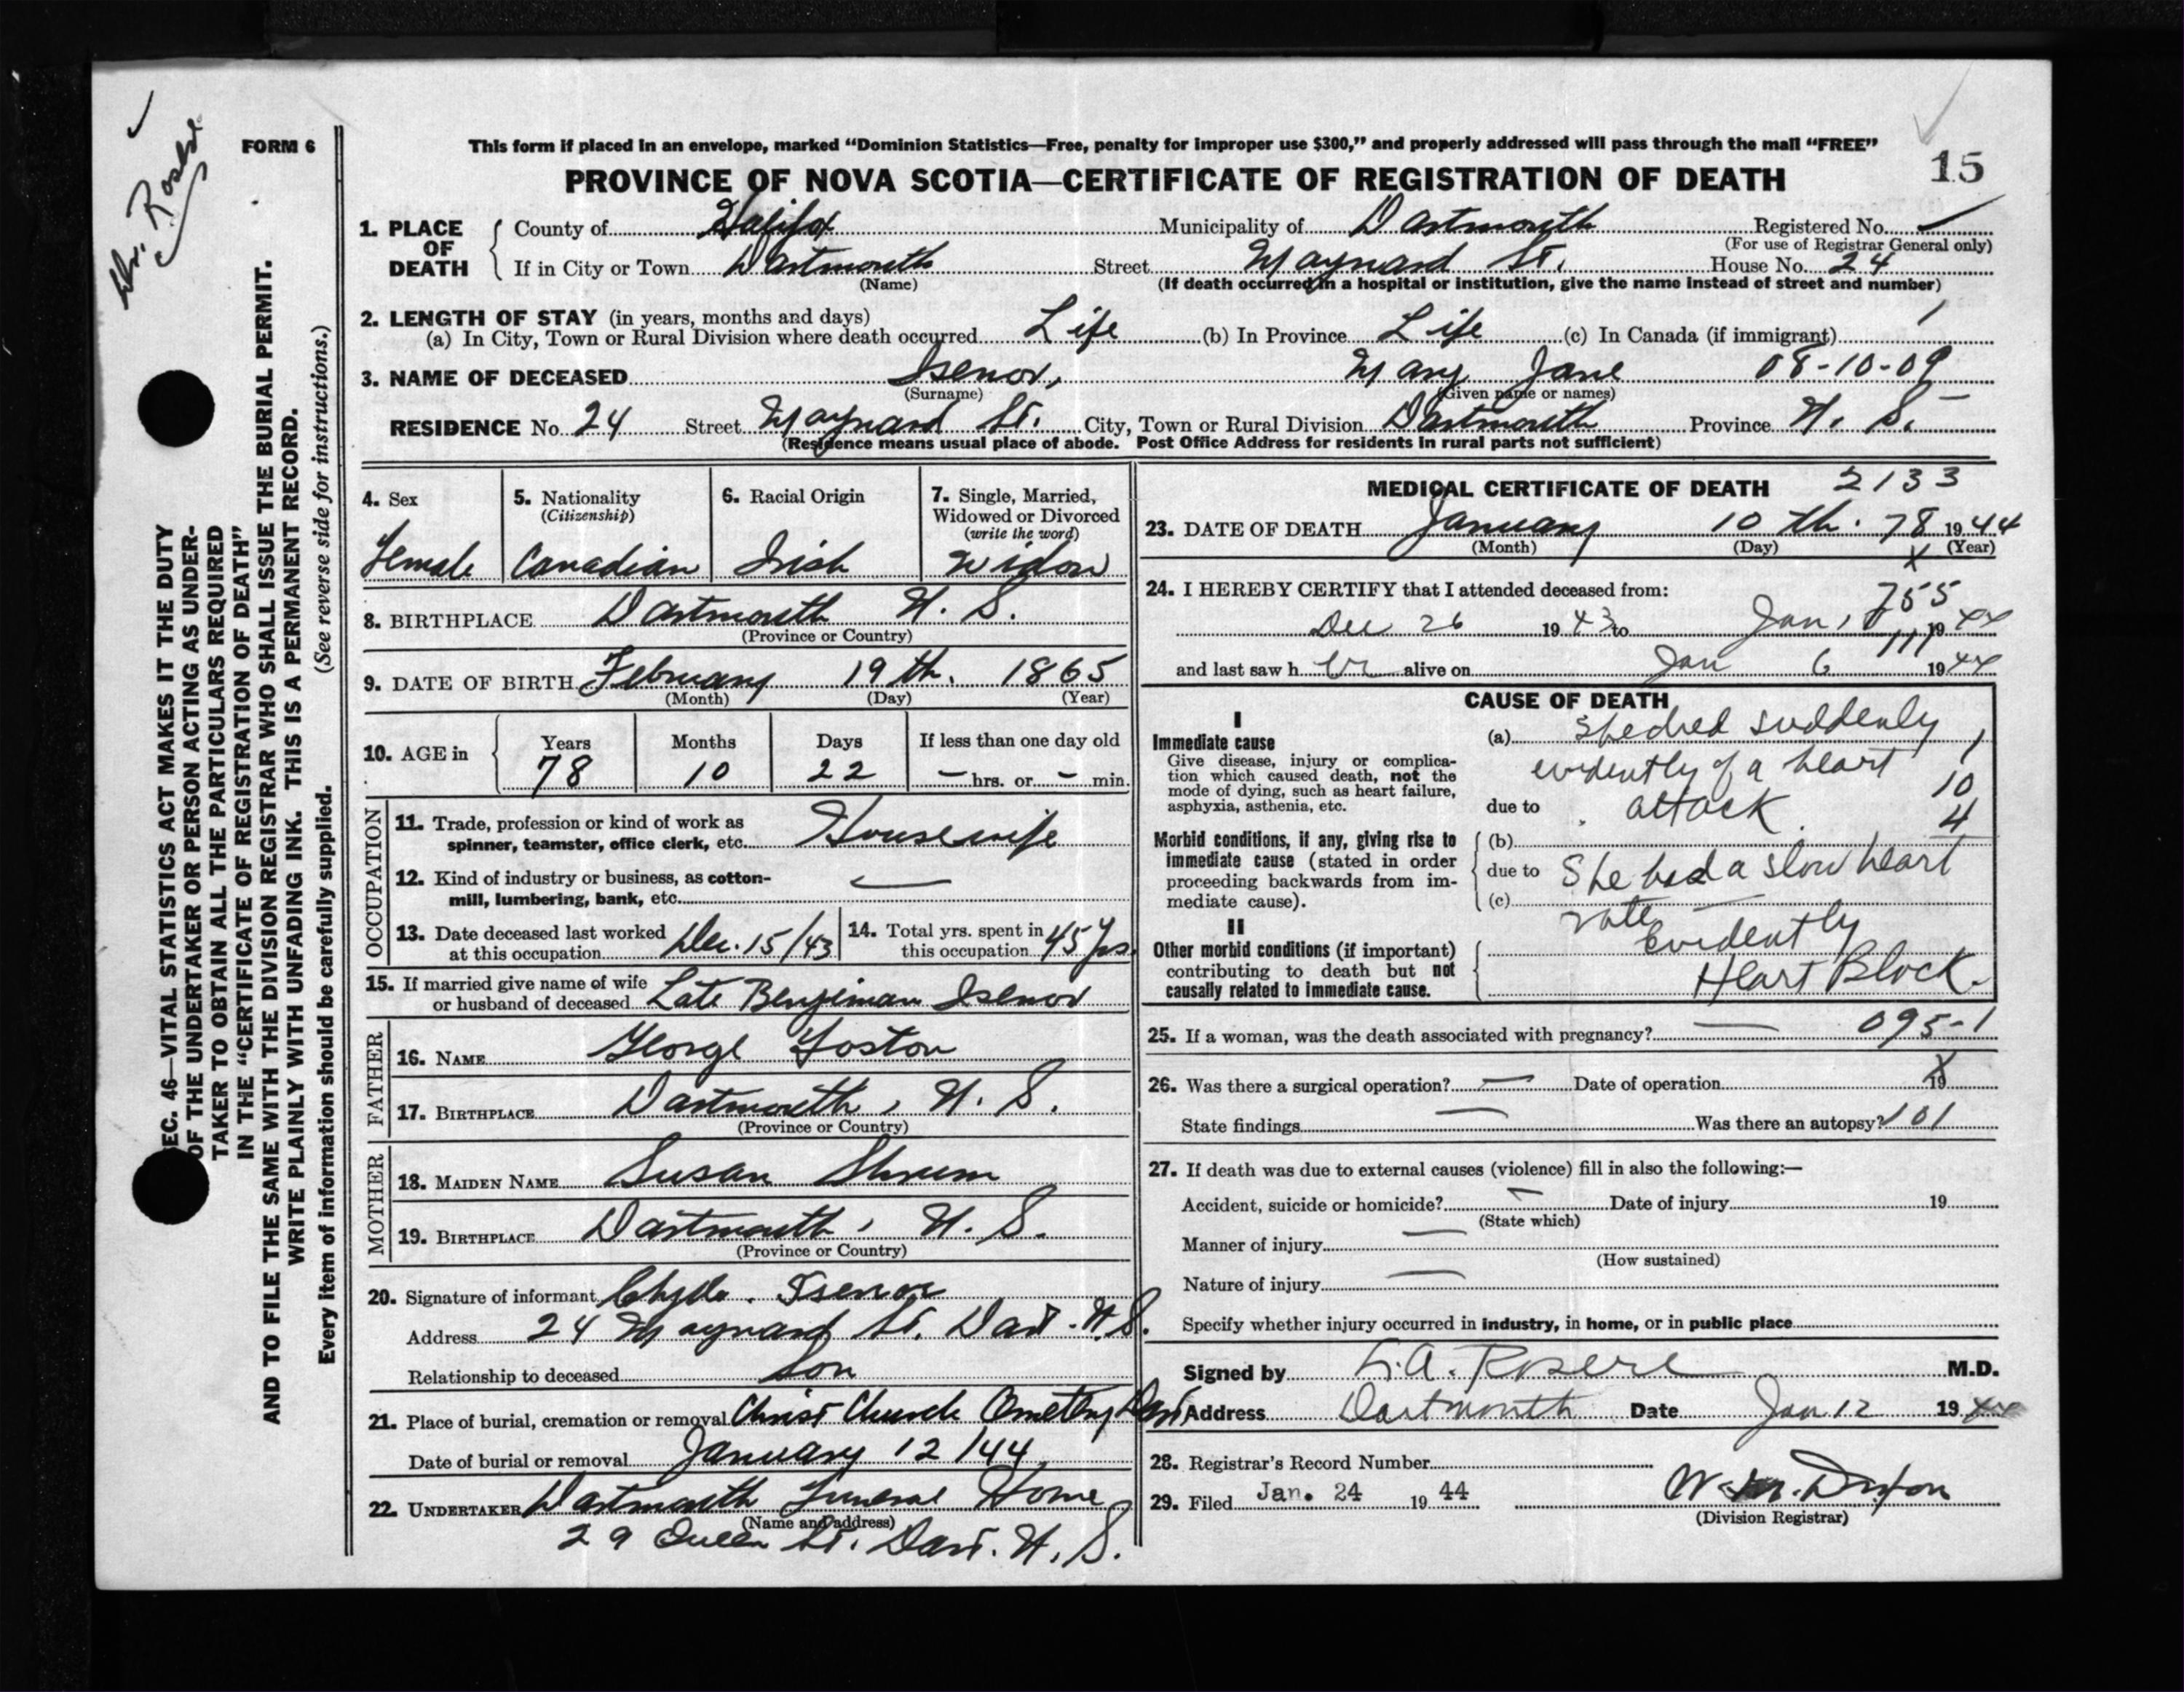 This form if placed in an envelope, marked “Dominion Statistics—Free, penalty for improper use $300,” and properly addressed will pass through the mail “FREE”
FORM 6
PROVINCE OF NOVA SCOTIA—CERTIFICATE OF REGISTRATION OF DEATH 15
1. PLACE OF DEATH { County of Halifax Municipality of Dartmouth Registered No.
(For use of Registrar General only)
If in City or Town Dartmouth Street Maynard St. House No. 24
(Name) (If death occurred in a hospital or institution, give the name instead of street and number)
2. LENGTH OF STAY (in years, months and days)
(a) In City, Town or Rural Division where death occurred Life (b) In Province Life (c) In Canada (if immigrant) /
3. NAME OF DECEASED Isenor, Mary Jane 08-10-09
(Surname) (Given name or names)
RESIDENCE No. 24 Street Maynard St. City, Town or Rural Division Dartmouth Province N. S.
(Residence means usual place of abode. Post Office Address for residents in rural parts not sufficient)
4. Sex
Female
5. Nationality
(Citizenship)
Canadian
6. Racial Origin
Irish
7. Single, Married,
Widowed or Divorced
(write the word)
Widow
8. BIRTHPLACE Dartmouth N. S.
(Province or Country)
9. DATE OF BIRTH February 19th. 1865
(Month) (Day) (Year)
10. AGE in { Years Months Days If less than one day old
78 10 22 — hrs. or — min.
OCCUPATION
11. Trade, profession or kind of work as
spinner, teamster, office clerk, etc. Housewife
12. Kind of industry or business, as cotton-
mill, lumbering, bank, etc. —
13. Date deceased last worked
at this occupation Dec. 15/43
14. Total yrs. spent in
this occupation 45 Yrs.
15. If married give name of wife
or husband of deceased Late Benjiman Isenor
FATHER
16. NAME George Foston
17. BIRTHPLACE Dartmouth, N. S.
(Province or Country)
MOTHER
18. MAIDEN NAME Susan Shrum
19. BIRTHPLACE Dartmouth, N. S.
(Province or Country)
20. Signature of informant Clyde Isenor
Address 24 Maynard St. Dart. N.S.
Relationship to deceased Son
21. Place of burial, cremation or removal Christ Church Cemetery Dart
Date of burial or removal January 12/44
22. UNDERTAKER Dartmouth Funeral Home
(Name and address)
29 Queen St. Dart. N. S.
MEDICAL CERTIFICATE OF DEATH 2133
23. DATE OF DEATH January 10th. 78 1944
(Month) (Day) (Year)
24. I HEREBY CERTIFY that I attended deceased from: 755
Dec 26 1943 to Jan, 1944
and last saw her alive on Jan 6 1944
CAUSE OF DEATH
I
Immediate cause
Give disease, injury or complica-
tion which caused death, not the
mode of dying, such as heart failure,
asphyxia, asthenia, etc.
(a) She died suddenly 1
evidently of a heart 10
due to attack. 4
Morbid conditions, if any, giving rise to
immediate cause (stated in order
proceeding backwards from im-
mediate cause).
(b)
due to She had a slow heart
(c) rate
II
Other morbid conditions (if important)
contributing to death but not
causally related to immediate cause.
Evidently
Heart Block.
25. If a woman, was the death associated with pregnancy? — 095-1
26. Was there a surgical operation? — Date of operation 19
State findings — Was there an autopsy? 101
27. If death was due to external causes (violence) fill in also the following:—
Accident, suicide or homicide? — Date of injury 19
(State which)
Manner of injury —
(How sustained)
Nature of injury —
Specify whether injury occurred in industry, in home, or in public place
Signed by M.D.
Address Dartmouth Date Jan 12 1944
28. Registrar's Record Number
29. Filed Jan. 24 1944
(Division Registrar)
EC. 46—VITAL STATISTICS ACT MAKES IT THE DUTY
OF THE UNDERTAKER OR PERSON ACTING AS UNDER-
TAKER TO OBTAIN ALL THE PARTICULARS REQUIRED
IN THE “CERTIFICATE OF REGISTRATION OF DEATH”
AND TO FILE THE SAME WITH THE DIVISION REGISTRAR WHO SHALL ISSUE THE BURIAL PERMIT.
WRITE PLAINLY WITH UNFADING INK. THIS IS A PERMANENT RECORD.
Every item of information should be carefully supplied. (See reverse side for instructions.)
Dr.